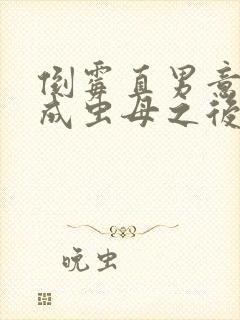 倒霉直男意
成虫母之後
晚虫